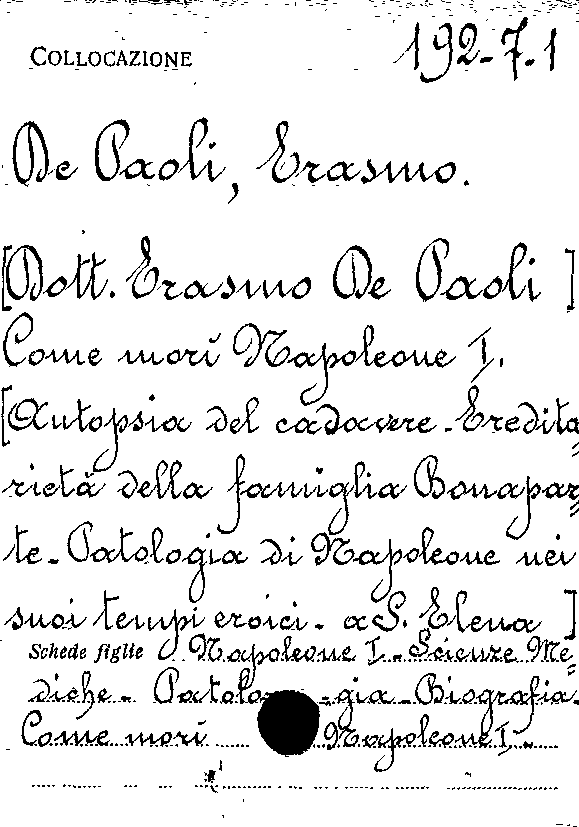 COLLOCAZIONE 192-7.1
De Paoli, Erasmo.
[Dott. Erasmo De Paoli]
Come morì Napoleone I.
[Autopsia del cadavere - Eredita=
rietà della famiglia Bonapar=
te - Patologia di Napoleone nei
suoi tempi eroici - a S. Elena]
Schede figlie Napoleone I - Scienze Me=
diche - Patolo-gia - Biografia -
Come morì Napoleone I -